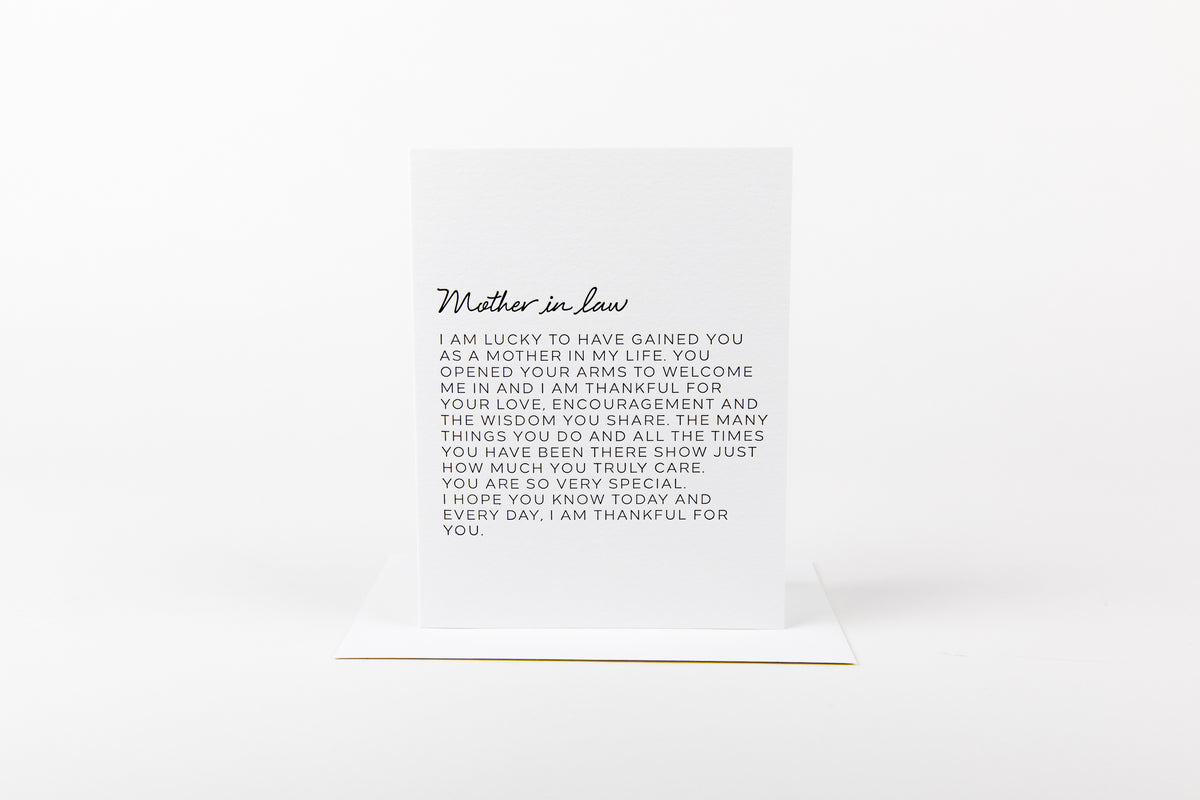 Mother in law
I AM LUCKY TO HAVE GAINED YOU
AS A MOTHER IN MY LIFE. YOU
OPENED YOUR ARMS TO WELCOME
ME IN AND I AM THANKFUL FOR
YOUR LOVE, ENCOURAGEMENT AND
THE WISDOM YOU SHARE. THE MANY
THINGS YOU DO AND ALL THE TIMES
YOU HAVE BEEN THERE SHOW JUST
HOW MUCH YOU TRULY CARE.
YOU ARE SO VERY SPECIAL.
I HOPE YOU KNOW TODAY AND
EVERY DAY, I AM THANKFUL FOR
YOU.